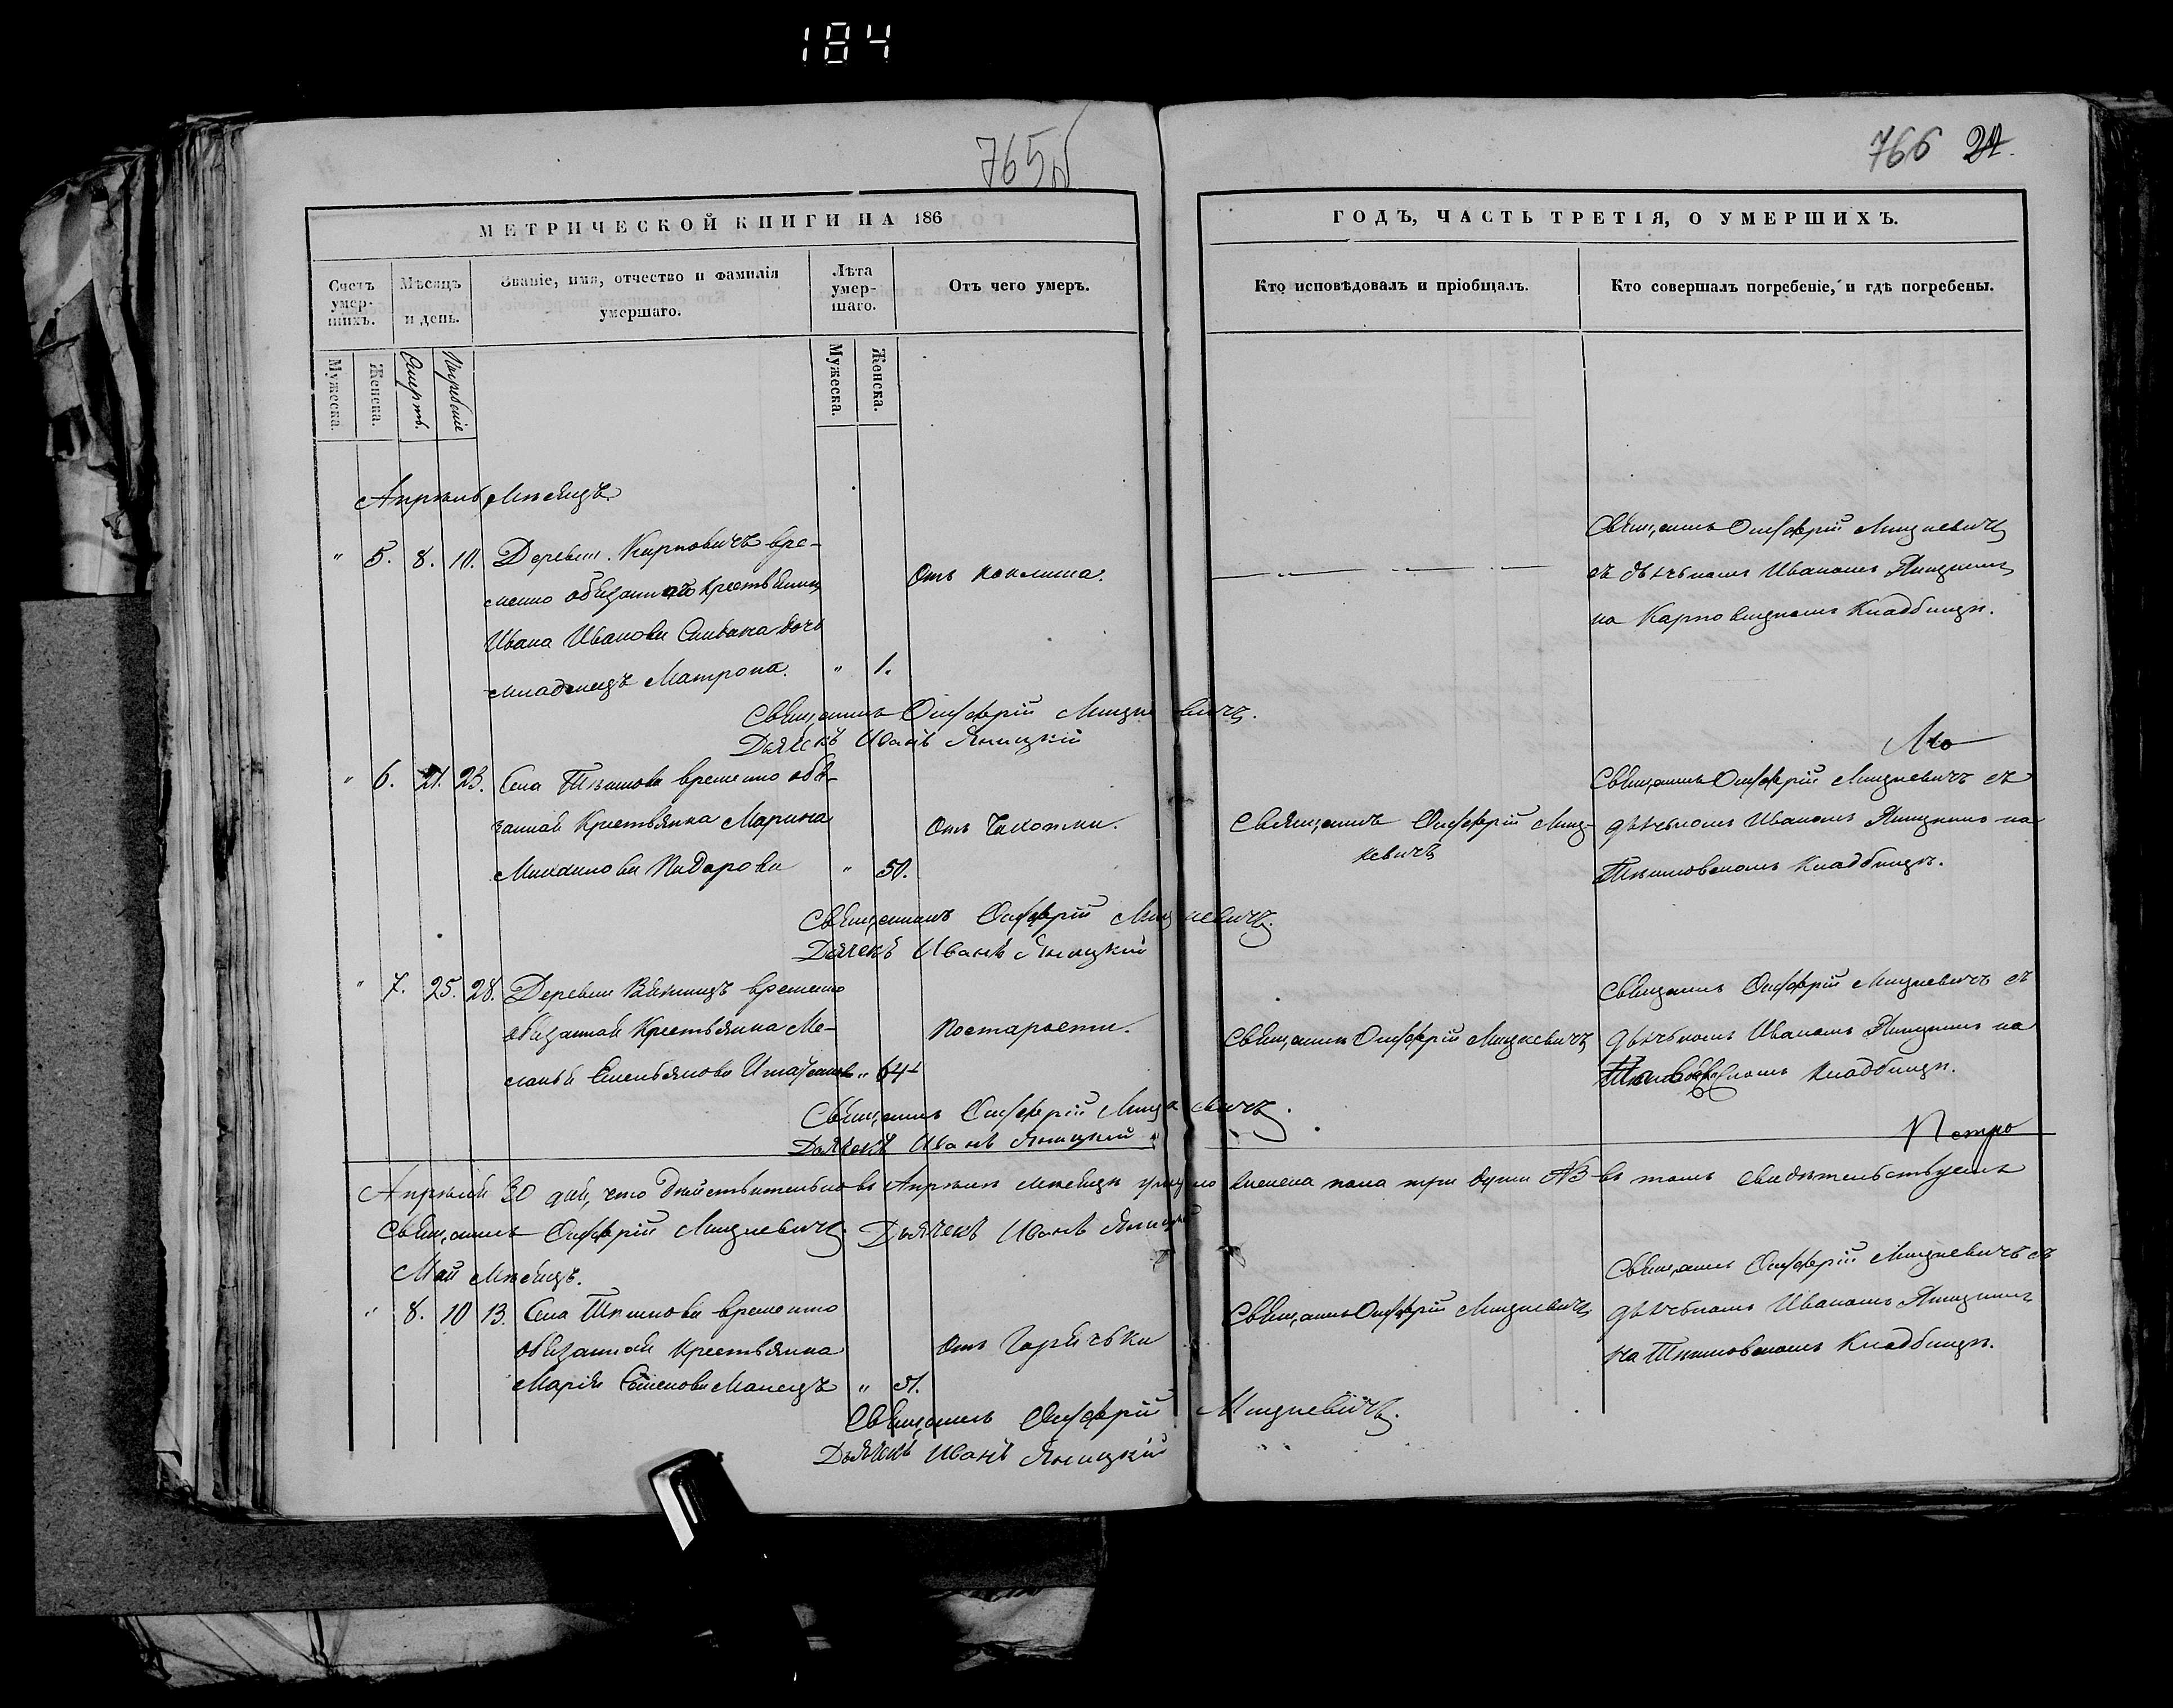 184
765
766 24.
МЕТРИЧЕСКОЙ КНИГИ НА 186
ГОДЪ, ЧАСТЬ ТРЕТІЯ, О УМЕРШИХЪ.
Счетъ умер-шихъ.
Мѣсяцъ и день.
Званіе, имя, отчество и фамилія умершаго.
Лѣта умер-шаго.
Отъ чего умеръ.
Кто исповѣдовалъ и пріобщалъ.
Кто совершалъ погребеніе, и гдѣ погребены.
Мужеска.
Женска.
Смерть.
Погребеніе
Мужеска.
Женска.
Апрѣль Мѣсяцъ.
" 5. 8. 10. Деревни Карповичъ вре-
менно обязаннаго крестьянина
Ивана Иванова дочь
младенецъ Матрона. " 1.
Отъ коклюша.
Священникъ Онуфрій Мицкевичъ
съ дьячкомъ Иваномъ
на Карповицкомъ Кладбищѣ.
Священникъ Онуфрій Мицкевичъ.
Дьячекъ Иванъ
" 6. 21. 23. Села временно обя-
занная Крестьянка Марина
" 50.
Отъ Чахотки.
Священникъ Онуфрій Миц-
кевичъ
Священникъ Онуфрій Мицкевичъ съ
дьячкомъ Иваномъ на
Кладбищѣ.
Священникъ Онуфрій Мицкевичъ.
Дьячекъ Иванъ
" 7. 25. 28. Деревни временно
обязанная Крестьянка Ме-
ланья Емельянова " 64
По старости.
Священникъ Онуфрій Мицкевичъ
Священникъ Онуфрій Мицкевичъ съ
дьячкомъ Иваномъ на
Кладбищѣ.
Священникъ Онуфрій Мицкевичъ.
Дьячекъ Иванъ
Петро
Апрѣля 30 дня, что дѣйствительно въ Апрѣлѣ мѣсяцѣ умерло женска пола три души №3 въ томъ свидѣтельствуемъ
Священникъ Онуфрій Мицкевичъ. Дьячекъ Иванъ
Май Мѣсяцъ.
" 8. 10 13. Села временно
обязанная Крестьянка
Марія Семенова "
Отъ Горячьки
Священникъ Онуфрій Мицкевичъ
Священникъ Онуфрій Мицкевичъ съ
дьячкомъ Иваномъ
на Кладбищѣ.
Священникъ Онуфрій Мицкевичъ.
Дьячекъ Иванъ